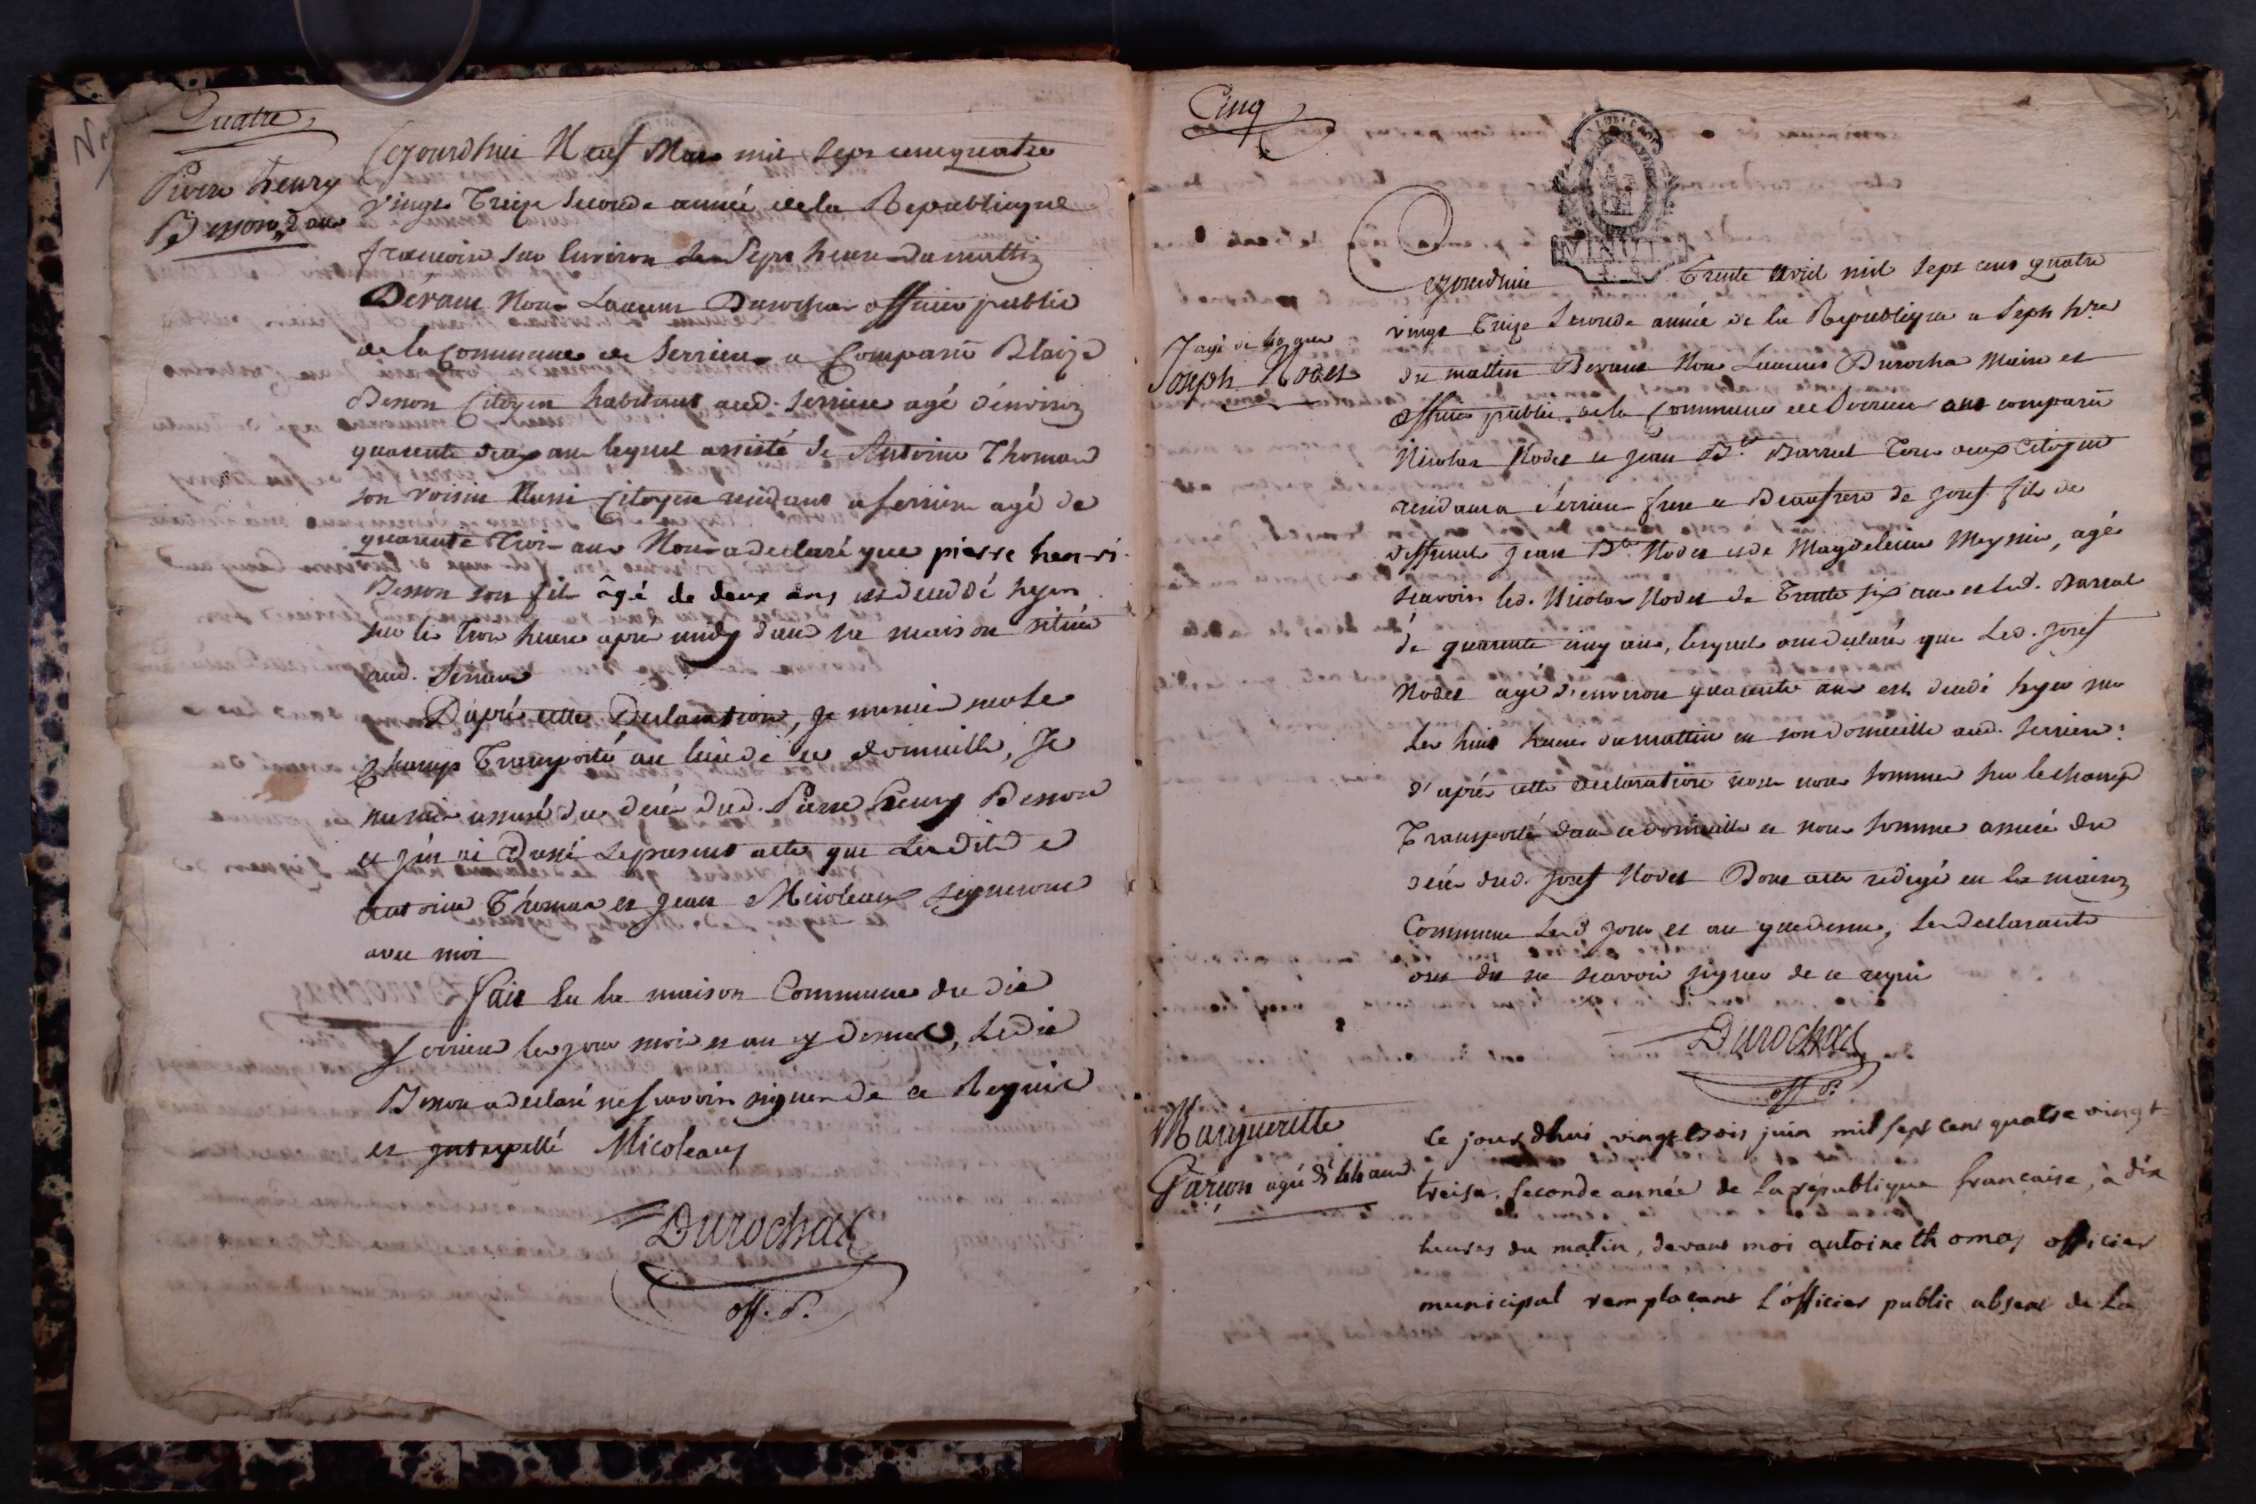 Quatre
Pierre henry
Besson, 2 ans
Cejourdhui Neuf Mars mil sept cens quatre
vingt Treize Seconde année de la Republique
francoise sur lenviron les Sept heures du mattin
Dévant Nous Laurens Durochat officier public
de la Commune de Serrieres a Comparû Blaize
Besson Citoyen habitant aud. Serrieres agé d'environ
quarente deux ans lequel assisté de Antoine Thomas
son voisin Aussi Citoyen residant a serrieres agé de
quarente Trois ans Nous a declaré que pierre henri
Besson son fils âgé de deux ans est deceddé hyer
sur les Trois heures apres midy dans sa maison située
aud. Serrieres
D'aprés cette Declaration, je me suis sur le
Champ Transporté au lieu de ce domicille, Je
me suis assuré du decés dud. Pierre henry Besson
et j'en ai Dressé le present acte que Lesdits
antoine Thomas et Jean Micoleaux signeront
avec moi
fait En la maison Commune du dit
Serrieres les jour mois et an cy dessus, Ledit
Besson a declaré ne scavoir signer de ce Requis
et interpellé Micoleaux
Durochat
off. P.
Cinq
MINUTE
agé de 40 ans
Joseph Nodet
Cejourdhui Trente Avril mil sept cens quatre
vingt Treize Seconde année de la Republique a Sept hres
du mattin Devant Nous Laurens Durochat Maire et
officier public de la Commune de Serrieres ont comparû
Nicolas Nodet et Jean Bte Barral Tous deux Citoyens
residants a Serrieres frere et Beaufrere de Josef fils de
deffunct Jean Bte Nodet et de Magdeleine Meynier, agés
scavoir led. Nicolas Nodet de Trente six ans et led. Barral
de quarente cinq ans, lesquels ont declaré que Led. Josef
Nodet agé d'environ quarente ans est decedé hyer sur
Les huit heures du mattin en son domicille aud. Serrieres:
d'aprés cette declaration nous nous sommes sur le champ
Transporté dans ce domicille et nous sommes assuré du
decés dud. Josef Nodet Dont acte redigé en la maison
Commune Lesd jour et an que dessus, les declarants
ont dit ne scavoir signer de ce requis
Durochat
off P.
Margueritte
Garçon agée de 44 ans
Ce jourdhui vingt trois juin mil sept cent quatre vingt
treise. Seconde année de la republique francaise, à dix
heures du matin, devant moi antoine thomas officier
municipal remplaçant l'officier public absent de la